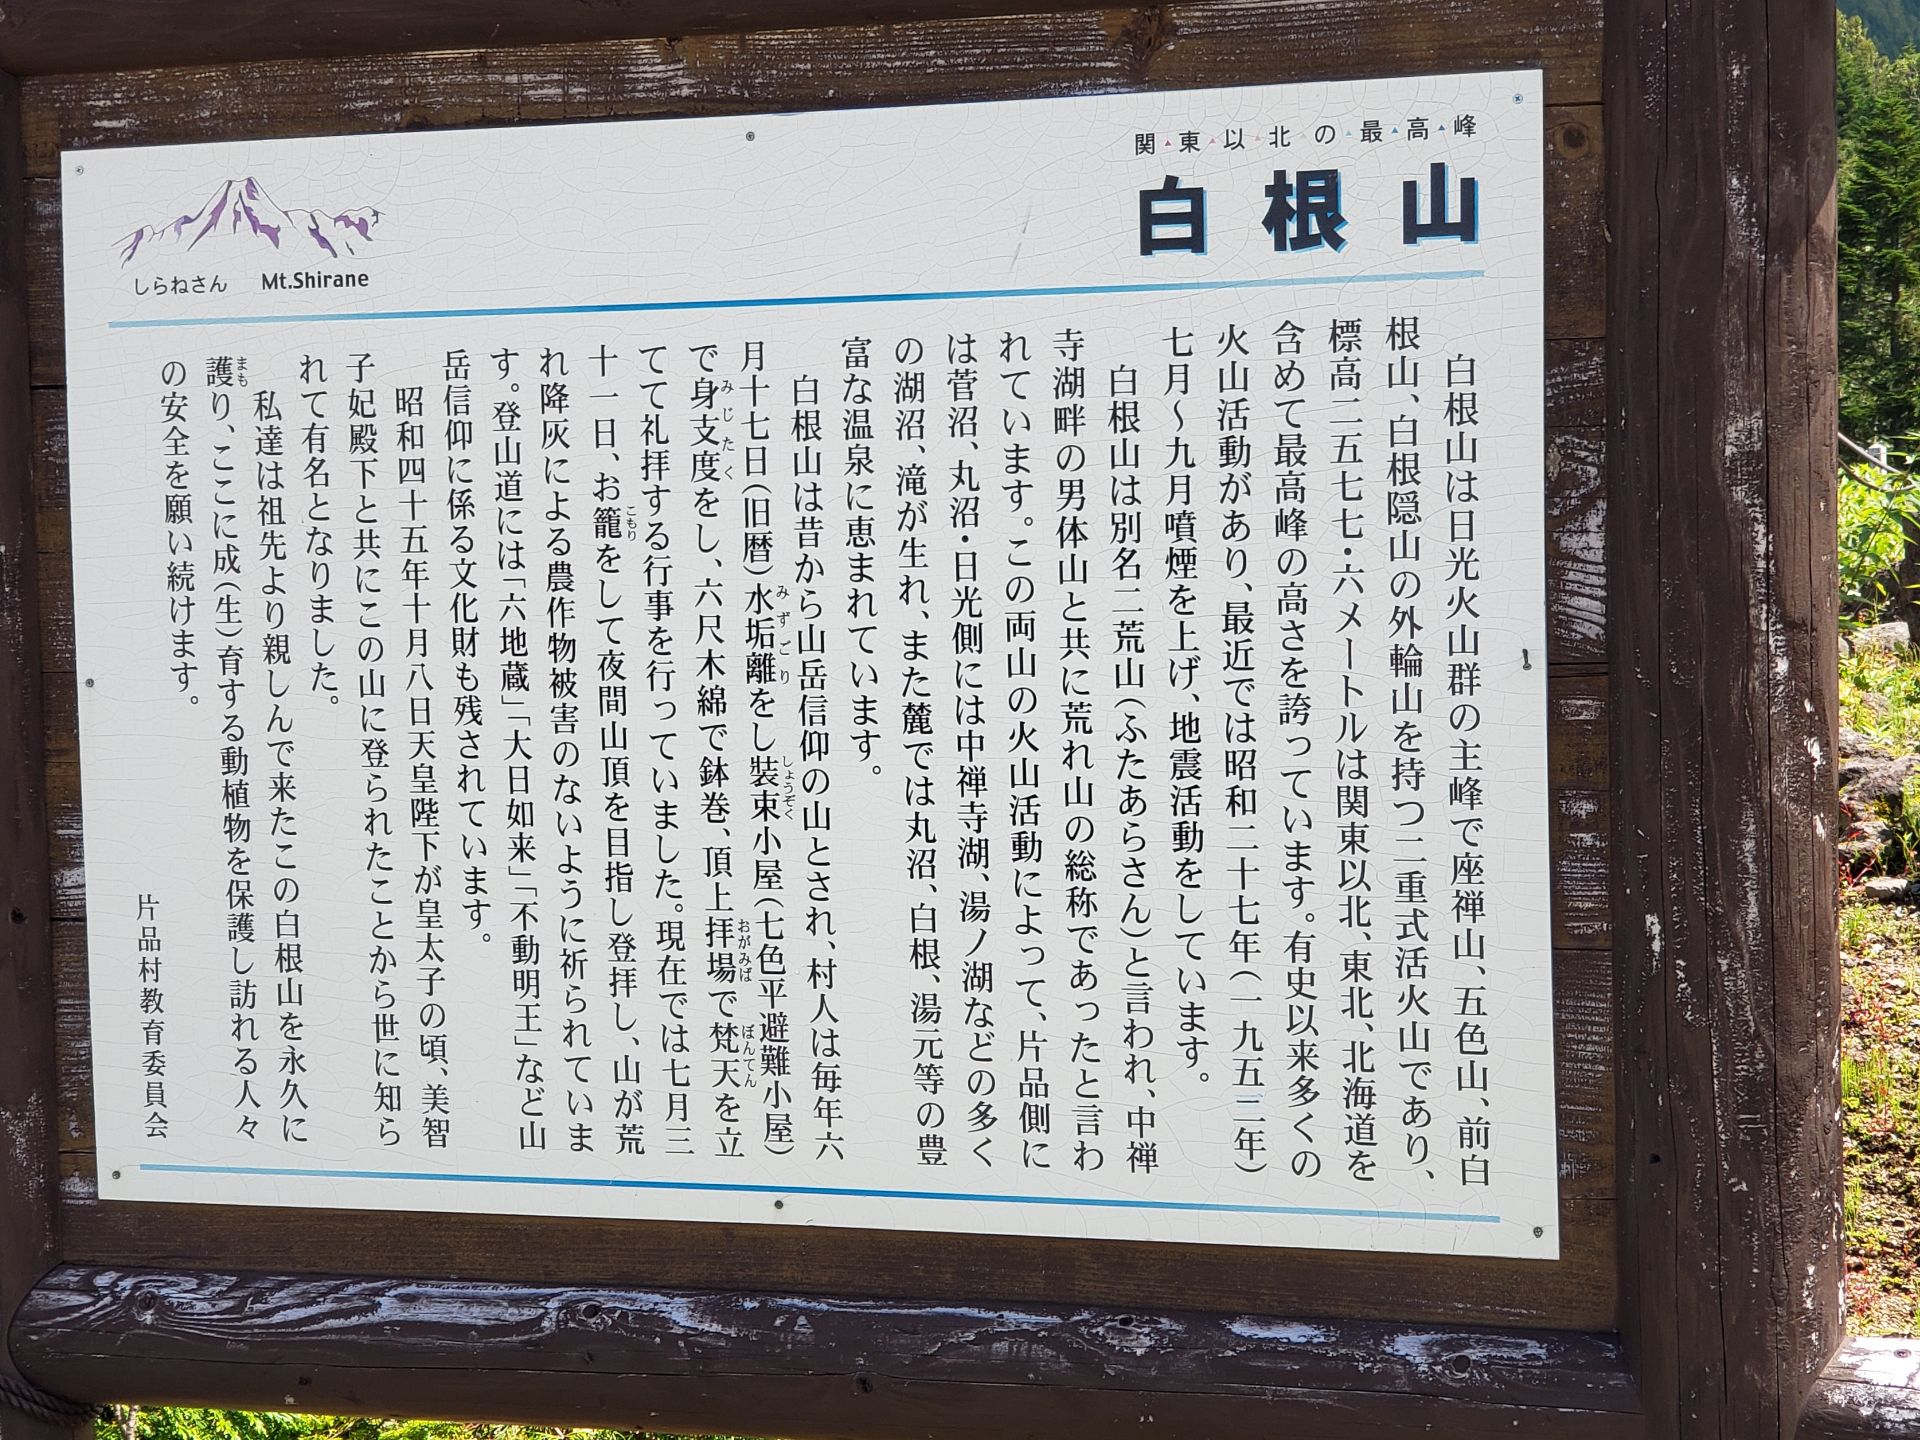 関東以北の最高峰
白根山
しらねさん Mt.Shirane
白根山は日光火山群の主峰で座禅山、五色山、前白
根山、白根隠山の外輪山を持つ二重式活火山であり、
標高二五七七・六メートルは関東以北、東北、北海道を
含めて最高峰の高さを誇っています。有史以来多くの
火山活動があり、最近では昭和二十七年(一九五二年)
七月〜九月噴煙を上げ、地震活動をしています。
白根山は別名二荒山(ふたあらさん)と言われ、中禅
寺湖畔の男体山と共に荒れ山の総称であったと言わ
れています。この両山の火山活動によって、片品側に
は菅沼、丸沼・日光側には中禅寺湖、湯ノ湖などの多く
の湖沼、滝が生れ、また麓では丸沼、白根、湯元等の豊
富な温泉に恵まれています。
白根山は昔から山岳信仰の山とされ、村人は毎年六
月十七日(旧暦)水垢離をし装束小屋(七色平避難小屋)
みずごり しょうぞく
で身支度をし、六尺木綿で鉢巻、頂上拝場で梵天を立
みじたく おがみば ぼんてん
てて礼拝する行事を行っていました。現在では七月三
十一日、お籠をして夜間山頂を目指し登拝し、山が荒
こもり
れ降灰による農作物被害のないように祈られていま
す。登山道には「六地蔵」「大日如来」「不動明王」など山
岳信仰に係る文化財も残されています。
昭和四十五年十月八日天皇陛下が皇太子の頃、美智
子妃殿下と共にこの山に登られたことから世に知ら
れて有名となりました。
私達は祖先より親しんで来たこの白根山を永久に
護り、ここに成(生)育する動植物を保護し訪れる人々
まも
の安全を願い続けます。
片品村教育委員会